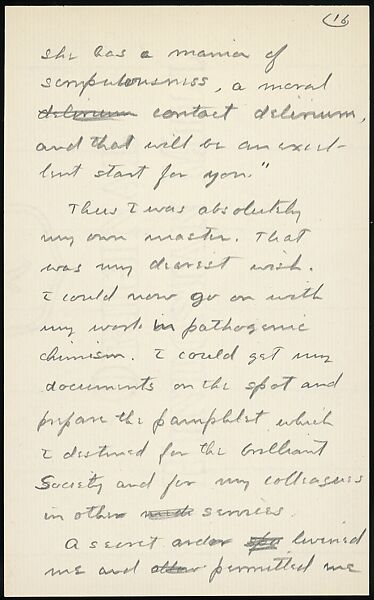 (16
she has a mania of
scrupulousness, a moral
delirium contact delirium,
and that will be an excel-
lent start for you."
Thus I was absolutely
my own master. That
was my dearest wish.
I could now go on with
my work in pathogenic
chimism. I could get my
documents on the spot and
prepare the pamphlet which
I destined for the brilliant
Society and for my colleagues
in other services.
A secret ardor livened
me and permitted me